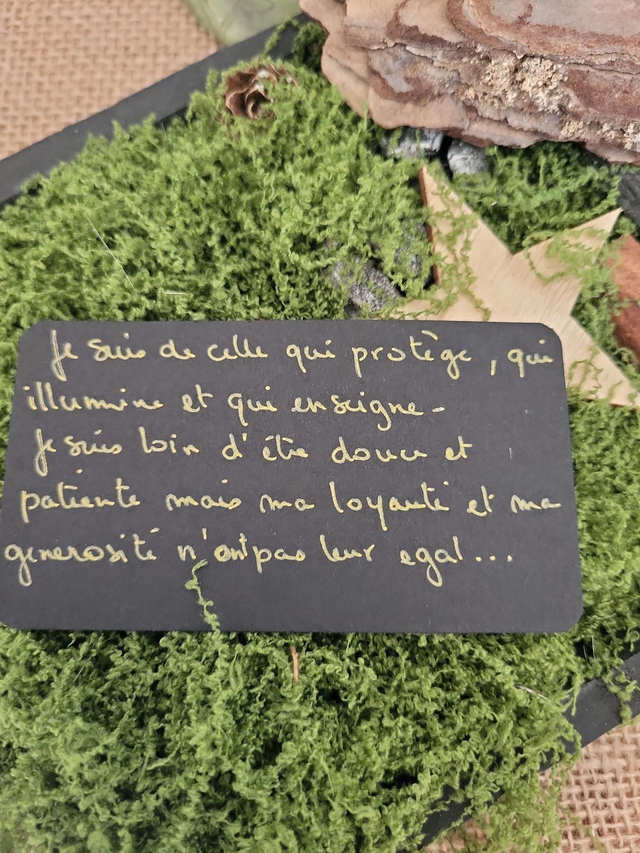 Je suis de celle qui protège, qui
illumine et qui enseigne.
Je suis loin d'être douce et
patiente mais ma loyauté et ma
generosité n'ont pas leur egal...